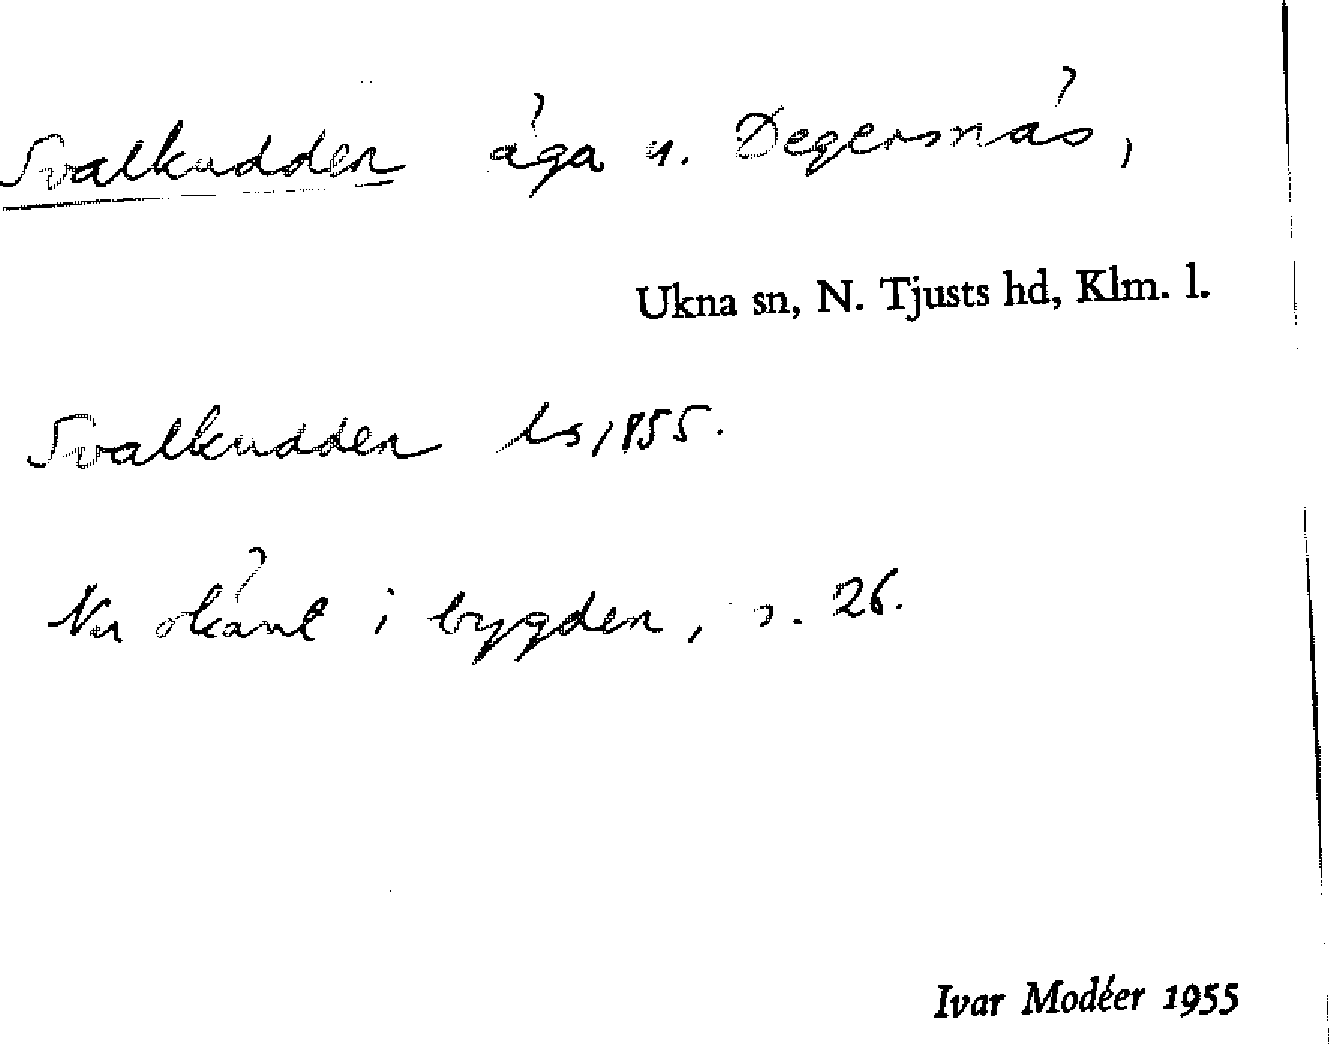 Svalkudden äga u. Degersnäs,
Ukna sn, N. Tjusts hd, Klm. l.
Svalkudden ls 1855.
Nu okänt i bygden, s. 26.
Ivar Modéer 1955